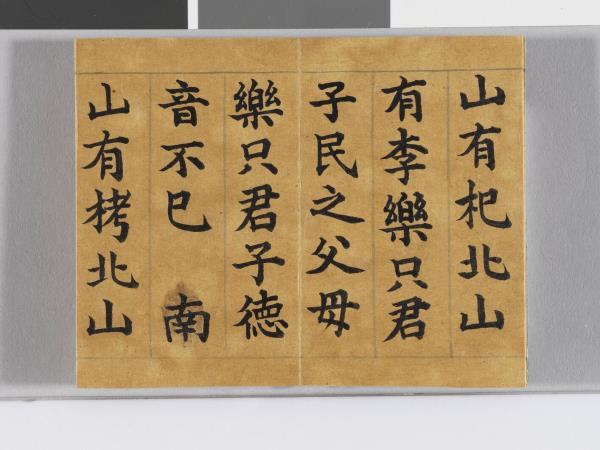 山有杞北山
有李樂只君
子民之父母
樂只君子德
音不已 南
山有栲北山